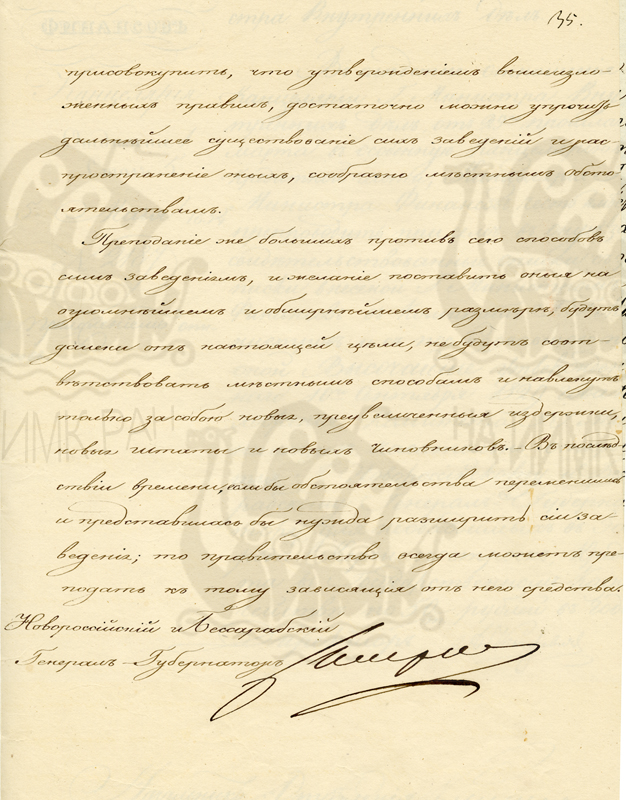 35.
присовокупить, что утвержденіемъ вышеизло-
женныхъ правилъ, достаточно можно упрочить
дальнѣйшее существованіе сихъ заведеній и рас-
пространеніе оныхъ, сообразно мѣстнымъ обсто-
ятельствамъ.
Преподаніе же большихъ противъ сего способовъ
симъ заведеніямъ, и желаніе поставить оныя на
огромнѣйшемъ и обширнѣйшемъ размѣрѣ, будутъ
далеки отъ настоящей цѣли, не будутъ соот-
вѣтствовать мѣстнымъ способамъ и навлекутъ
только за собою новыя, преувеличенныя издержки,
новыя штаты и новыхъ чиновниковъ. – Въ послѣд-
ствіи времени, если бы обстоятельства перемѣнились
и представилась бы нужда разширить сіи за-
веденія; то правительство всегда можетъ пре-
подать къ тому зависящія отъ него средства.
Новороссійскій и Бессарабскій
Генералъ-Губернаторъ
ИИМК РАН
ИИМК РАН